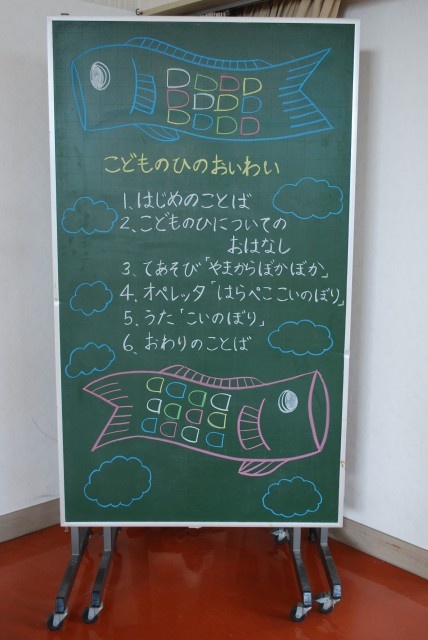 こどものひのおいわい
1. はじめのことば
2. こどものひについての
おはなし
3. てあそび「やまからぽかぽか」
4. オペレッタ「はらぺここいのぼり」
5. うた「こいのぼり」
6. おわりのことば